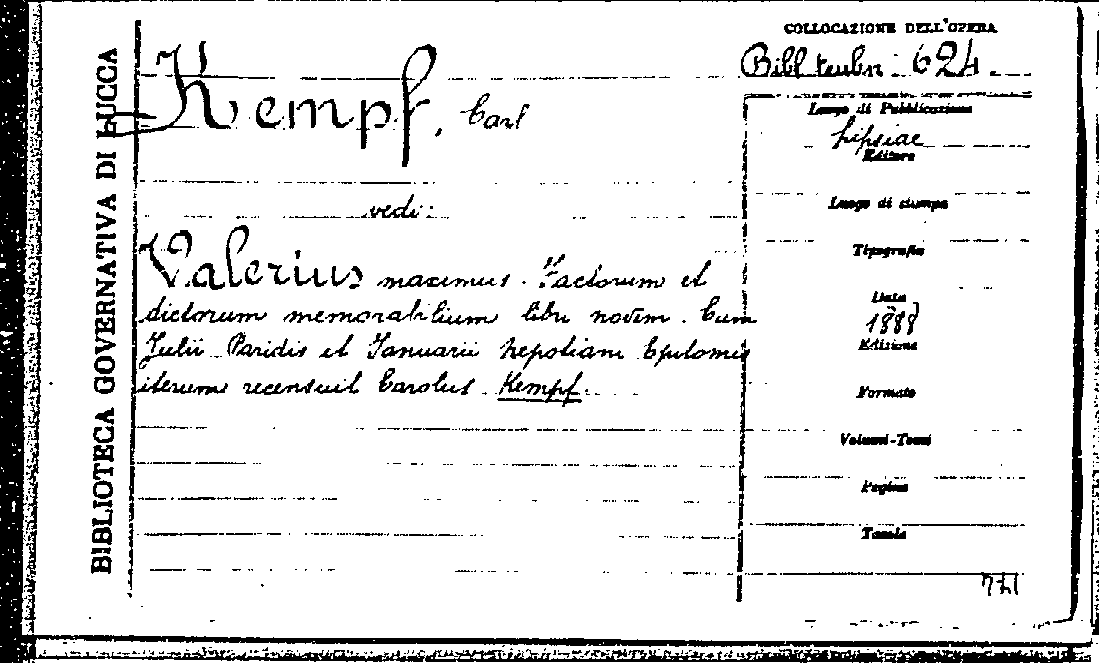 BIBLIOTECA GOVERNATIVA DI LUCCA
COLLOCAZIONE DELL'OPERA
Bibl teubn. 624.
Kempf, Carl
vedi:
Valerius maximus. Factorum et
dictorum memorabilium libri novem. Cum
Julii Paridis et Januarii Nepotiani Epitomis
iterum recensuit Carolus Kempf.
Luogo di Pubblicazione
Lipsiae
Editore
Luogo di stampa
Tipografia
Data
1888
Edizione
Formato
Volumi-Tomi
Pagine
Tavole